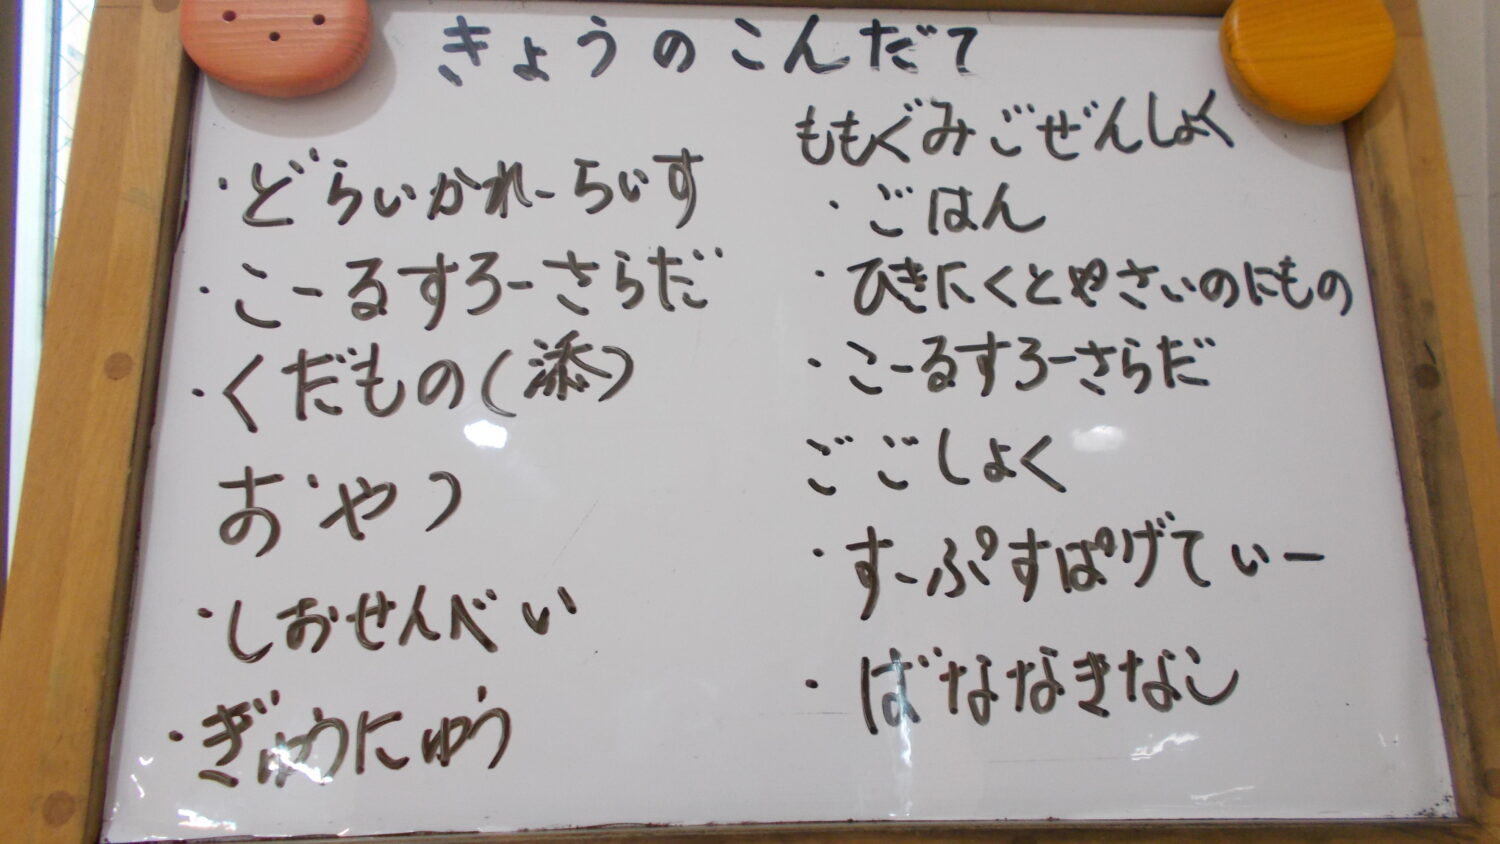 きょうのこんだて
・どらいかれーらいす
・こーるすろーさらだ
・くだもの(添)
おやつ
・しおせんべい
・ぎゅうにゅう
ももぐみごぜんしょく
・ごはん
・ひきにくとやさいのにもの
・こーるすろーさらだ
ごごしょく
・すーぷすぱげてぃー
・ばななきなこ